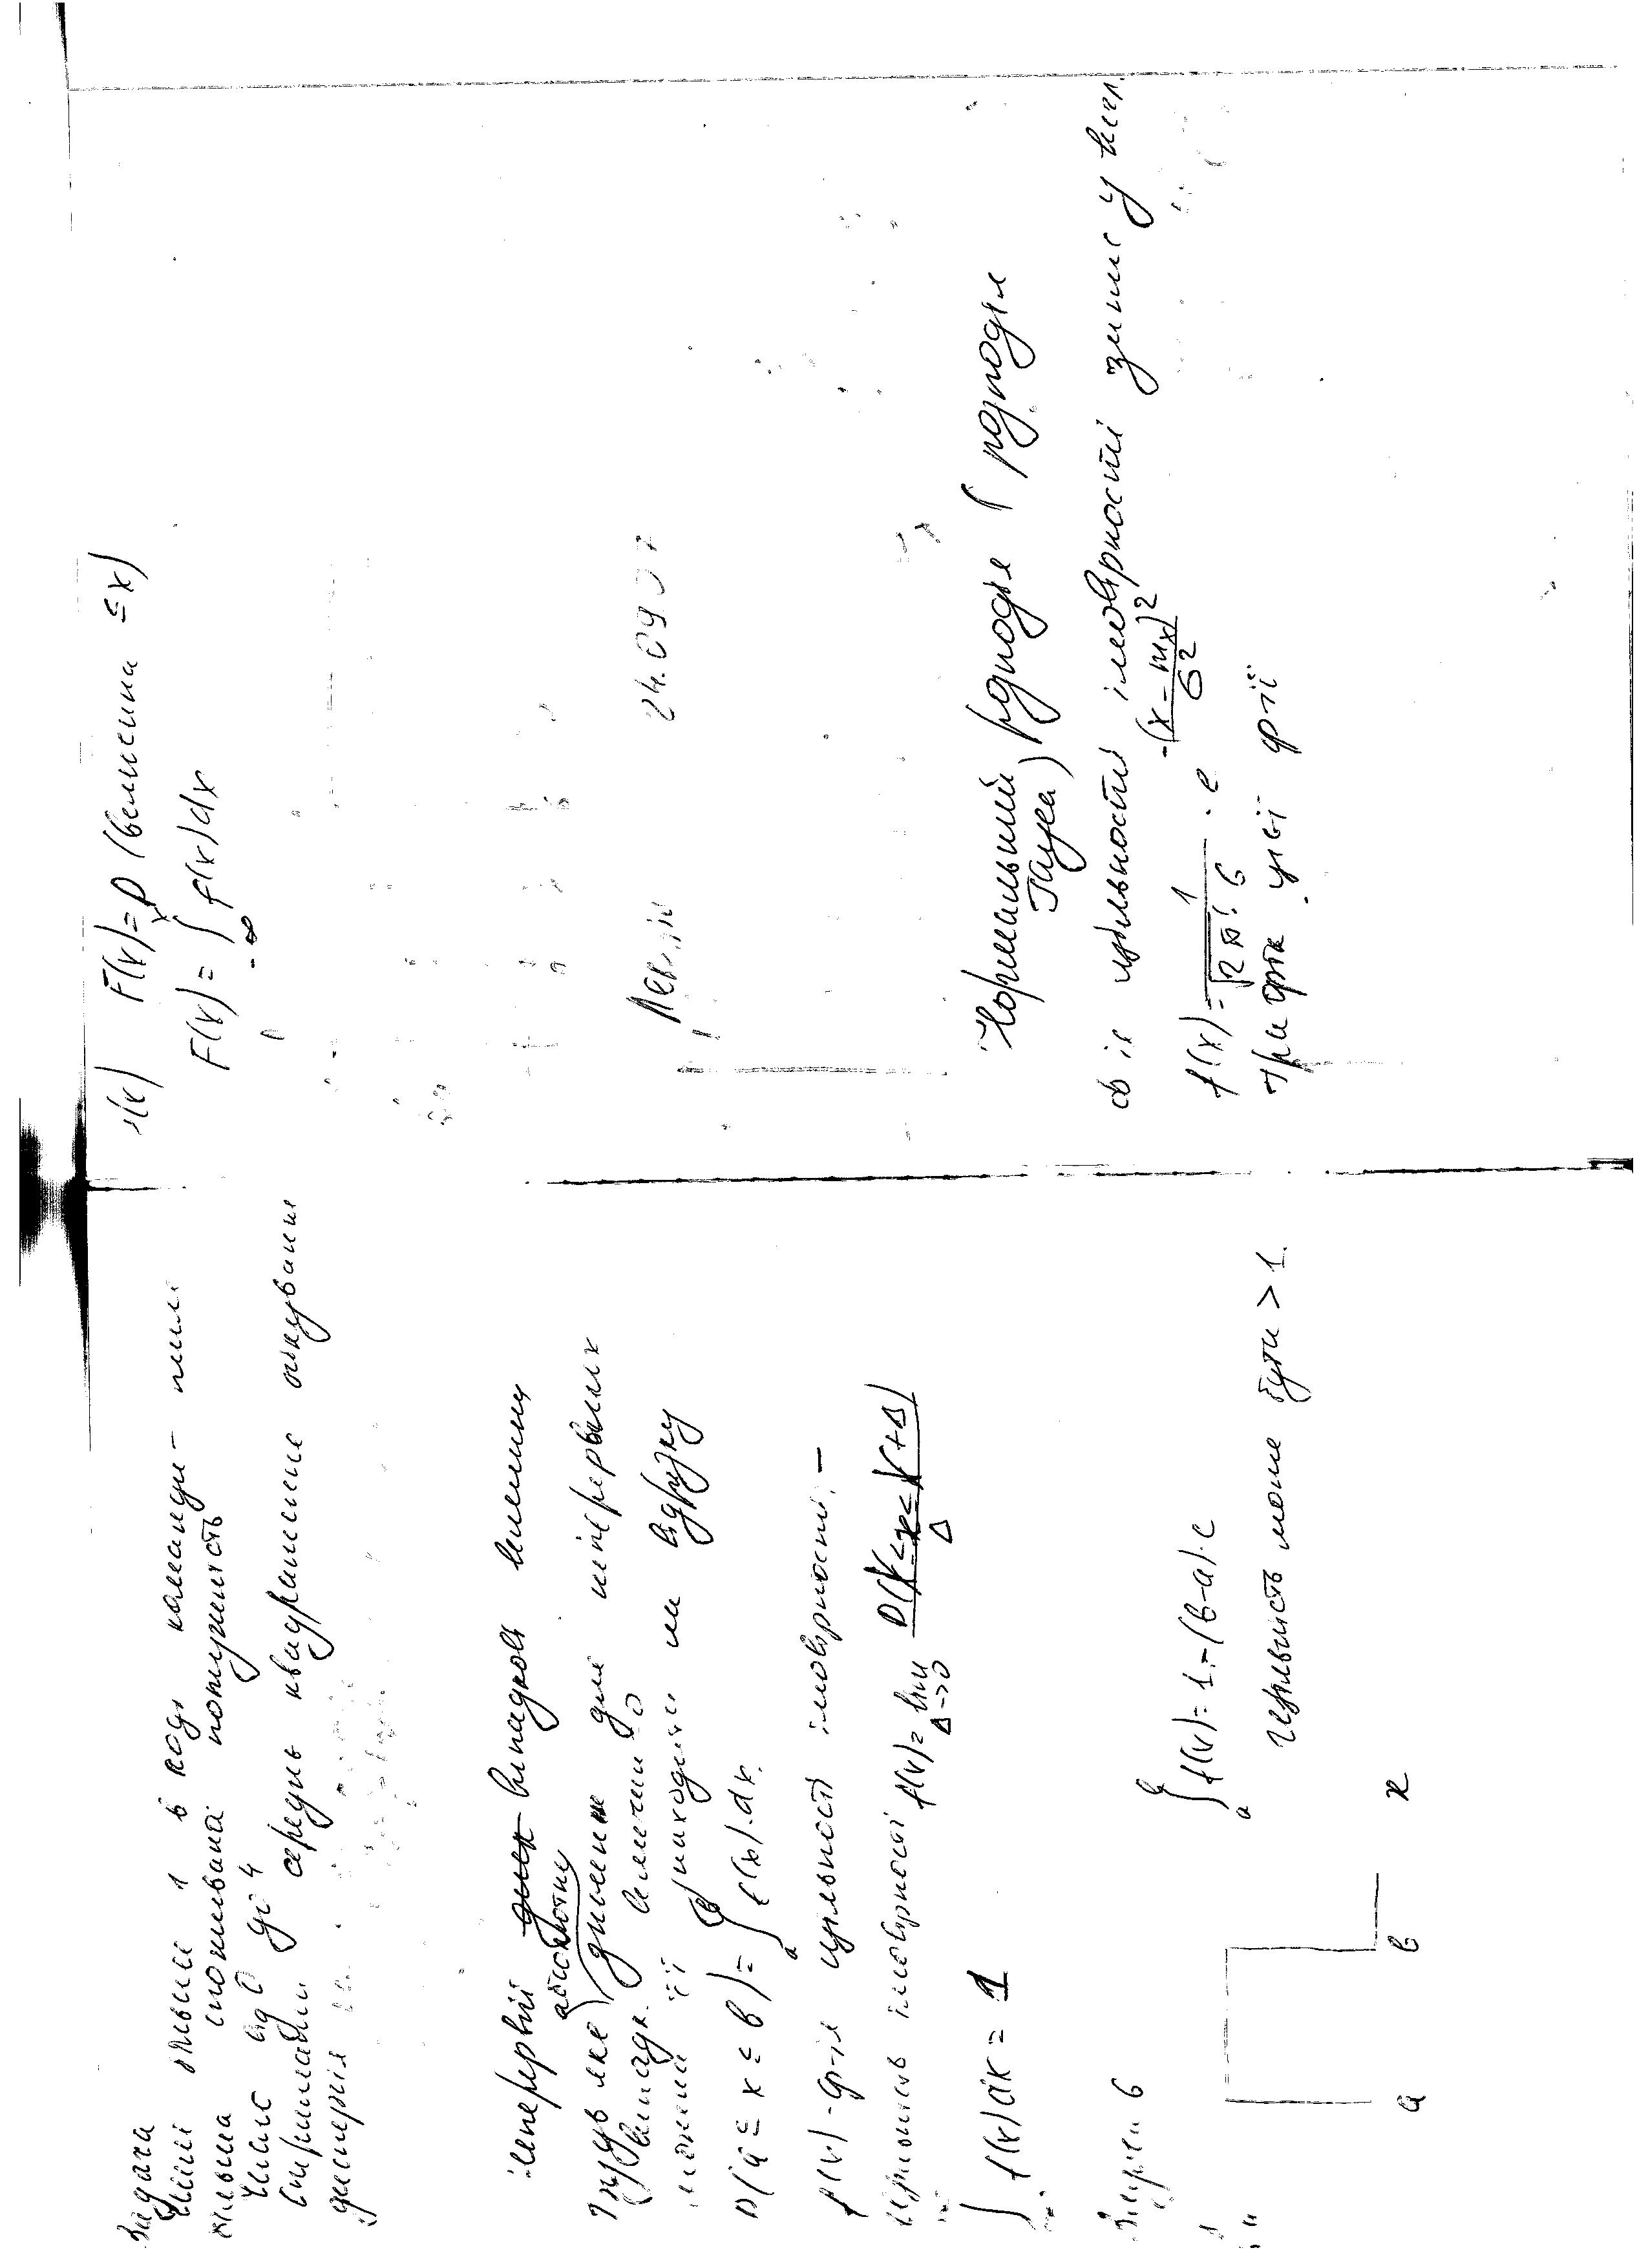 Задача
Чим більше 1 в коді команди - тим
більша споживана потужність
Число від 0 до 4
Отримати середнь квадратичне очікування
дисперсія
Неперервні випадкові величини
абсолютне
будь яке значення для неперервних
випадк. величин 0
можемо її знаходити на відрізку
P(a ≤ x ≤ b) = ∫ f(x)·dx.
b
a
f(x) - ф-ія щільності імовірності, -
щільність імовірності f(x) = lim P(X ≤ x ≤ X+Δ)
Δ->0 Δ
∫ f(x)dx = 1
6
b
∫ f(x) = 1 = (b-a)·c
a
щільність може бути > 1.
a b x
F(x) = P (величина ≤ x)
x
F(x) = ∫ f(x)dx
-∞
Лекція 24.09.07
Нормальний розподіл ( розподіл
Гауса)
ф ія щільності імовірності запис у вигл.
f(x) = 1 · e -(x - mx)²
√2π · б б²
Графік цієї ф-ії